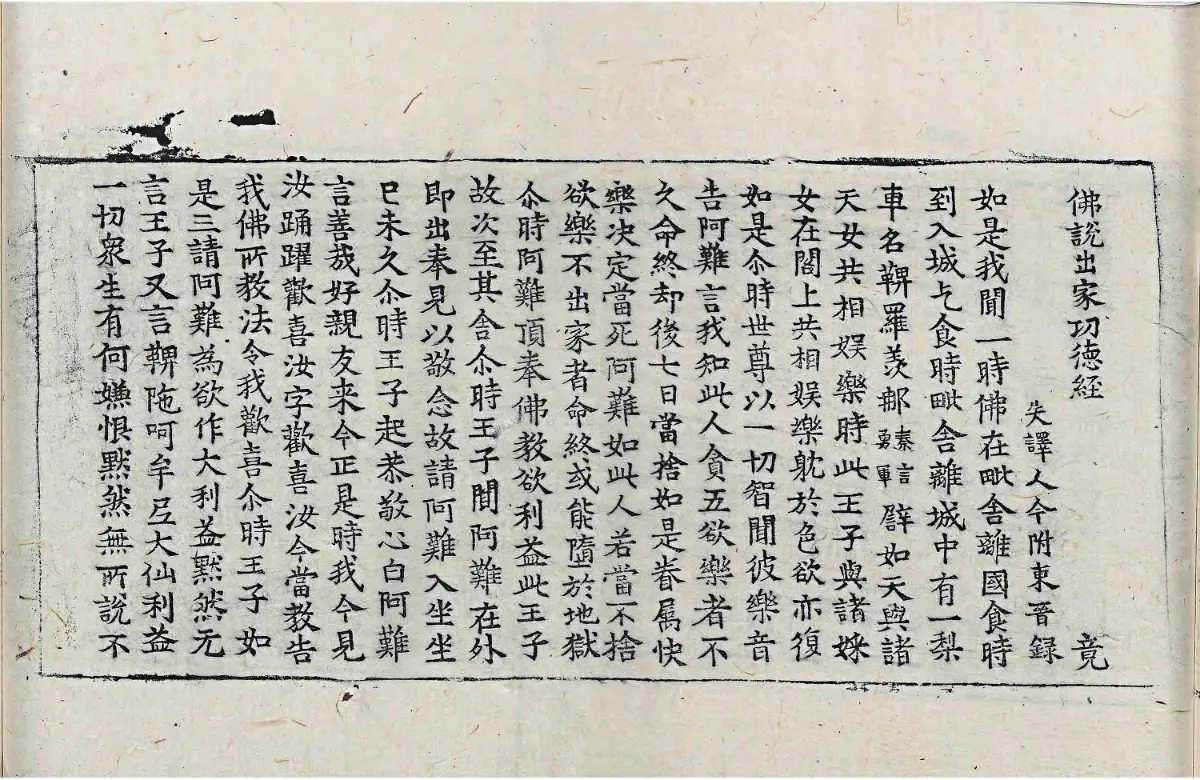 佛說出家功德經 竟
失譯人今附東晉錄
如是我聞一時佛在毗舍離國食時
到入城乞食時毗舍離城中有一梨
車名鞞羅羨那秦言勇軍譬如天與諸
天女共相娛樂時此王子與諸婇
女在閣上共相娛樂躭於色欲亦復
如是尒時世尊以一切智聞彼樂音
告阿難言我知此人貪五欲樂者不
久命終却後七日當捨如是眷属快
樂决定當死阿難如此人若當不捨
欲樂不出家者命終或能墮於地獄
尒時阿難頂奉佛教欲利益此王子
故次至其舍尒時王子聞阿難在外
即出奉見以敬念故請阿難入坐坐
已未久尒時王子起恭敬心白阿難
言善哉好親友来今正是時我今見
汝踊躍歡喜汝字歡喜汝今當教告
我佛所教法令我歡喜尒時王子如
是三請阿難為欲作大利益默然无
言王子又言鞞陁呵牟𡰱大仙利益
一切衆生有何嫌恨默然無所說不